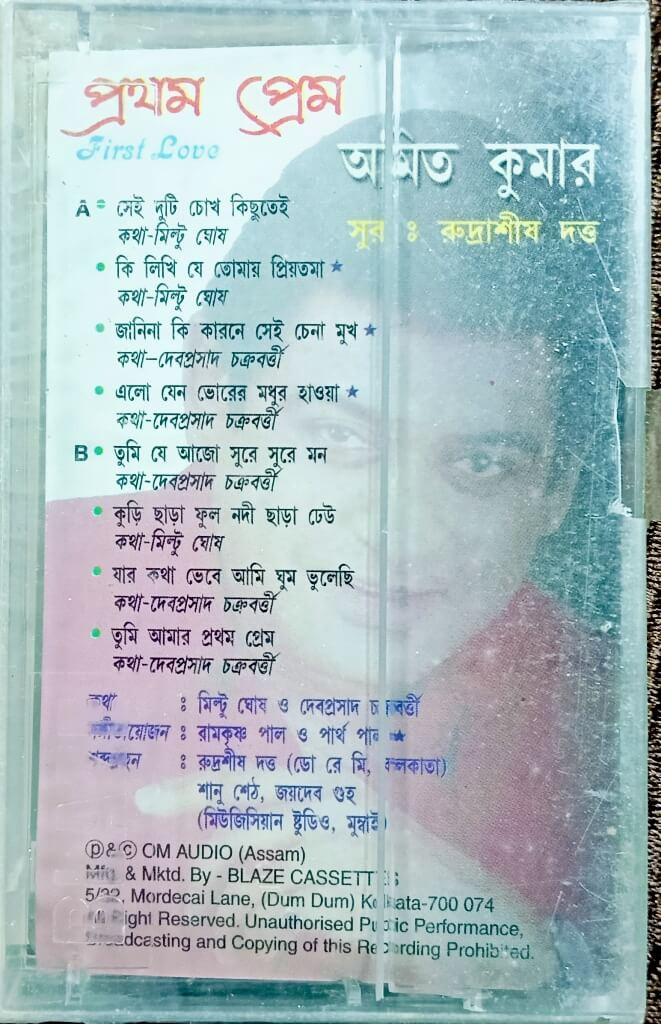 প্রথম প্রেম
First Love
অমিত কুমার
সুর ঃ রুদ্রাশীষ দত্ত
A • সেই দুটি চোখ কিছুতেই
কথা-মিল্টু ঘোষ
• কি লিখি যে তোমায় প্রিয়তমা ★
কথা-মিল্টু ঘোষ
• জানিনা কি কারনে সেই চেনা মুখ ★
কথা-দেবপ্রসাদ চক্রবর্ত্তী
• এলো যেন ভোরের মধুর হাওয়া ★
কথা-দেবপ্রসাদ চক্রবর্ত্তী
B • তুমি যে আজো সুরে সুরে মন
কথা-দেবপ্রসাদ চক্রবর্ত্তী
• কুড়ি ছাড়া ফুল নদী ছাড়া ঢেউ
কথা-মিল্টু ঘোষ
• যার কথা ভেবে আমি ঘুম ভুলেছি
কথা-দেবপ্রসাদ চক্রবর্ত্তী
• তুমি আমার প্রথম প্রেম
কথা-দেবপ্রসাদ চক্রবর্ত্তী
কথা ঃ মিল্টু ঘোষ ও দেবপ্রসাদ চক্রবর্ত্তী
ঃ রামকৃষ্ণ পাল ও পার্থ পাল ★
ঃ রুদ্রশীষ দত্ত (ডো রে মি, কলকাতা)
শানু শেঠ, জয়দেব গুহ
(মিউজিসিয়ান ষ্টুডিও, মুম্বাই)
ⓟ & © OM AUDIO (Assam)
Mfg. & Mktd. By - BLAZE CASSETTES
Mordecai Lane, (Dum Dum) Kolkata-700 074
All Right Reserved. Unauthorised Public Performance,
Broadcasting and Copying of this Recording Prohibited.